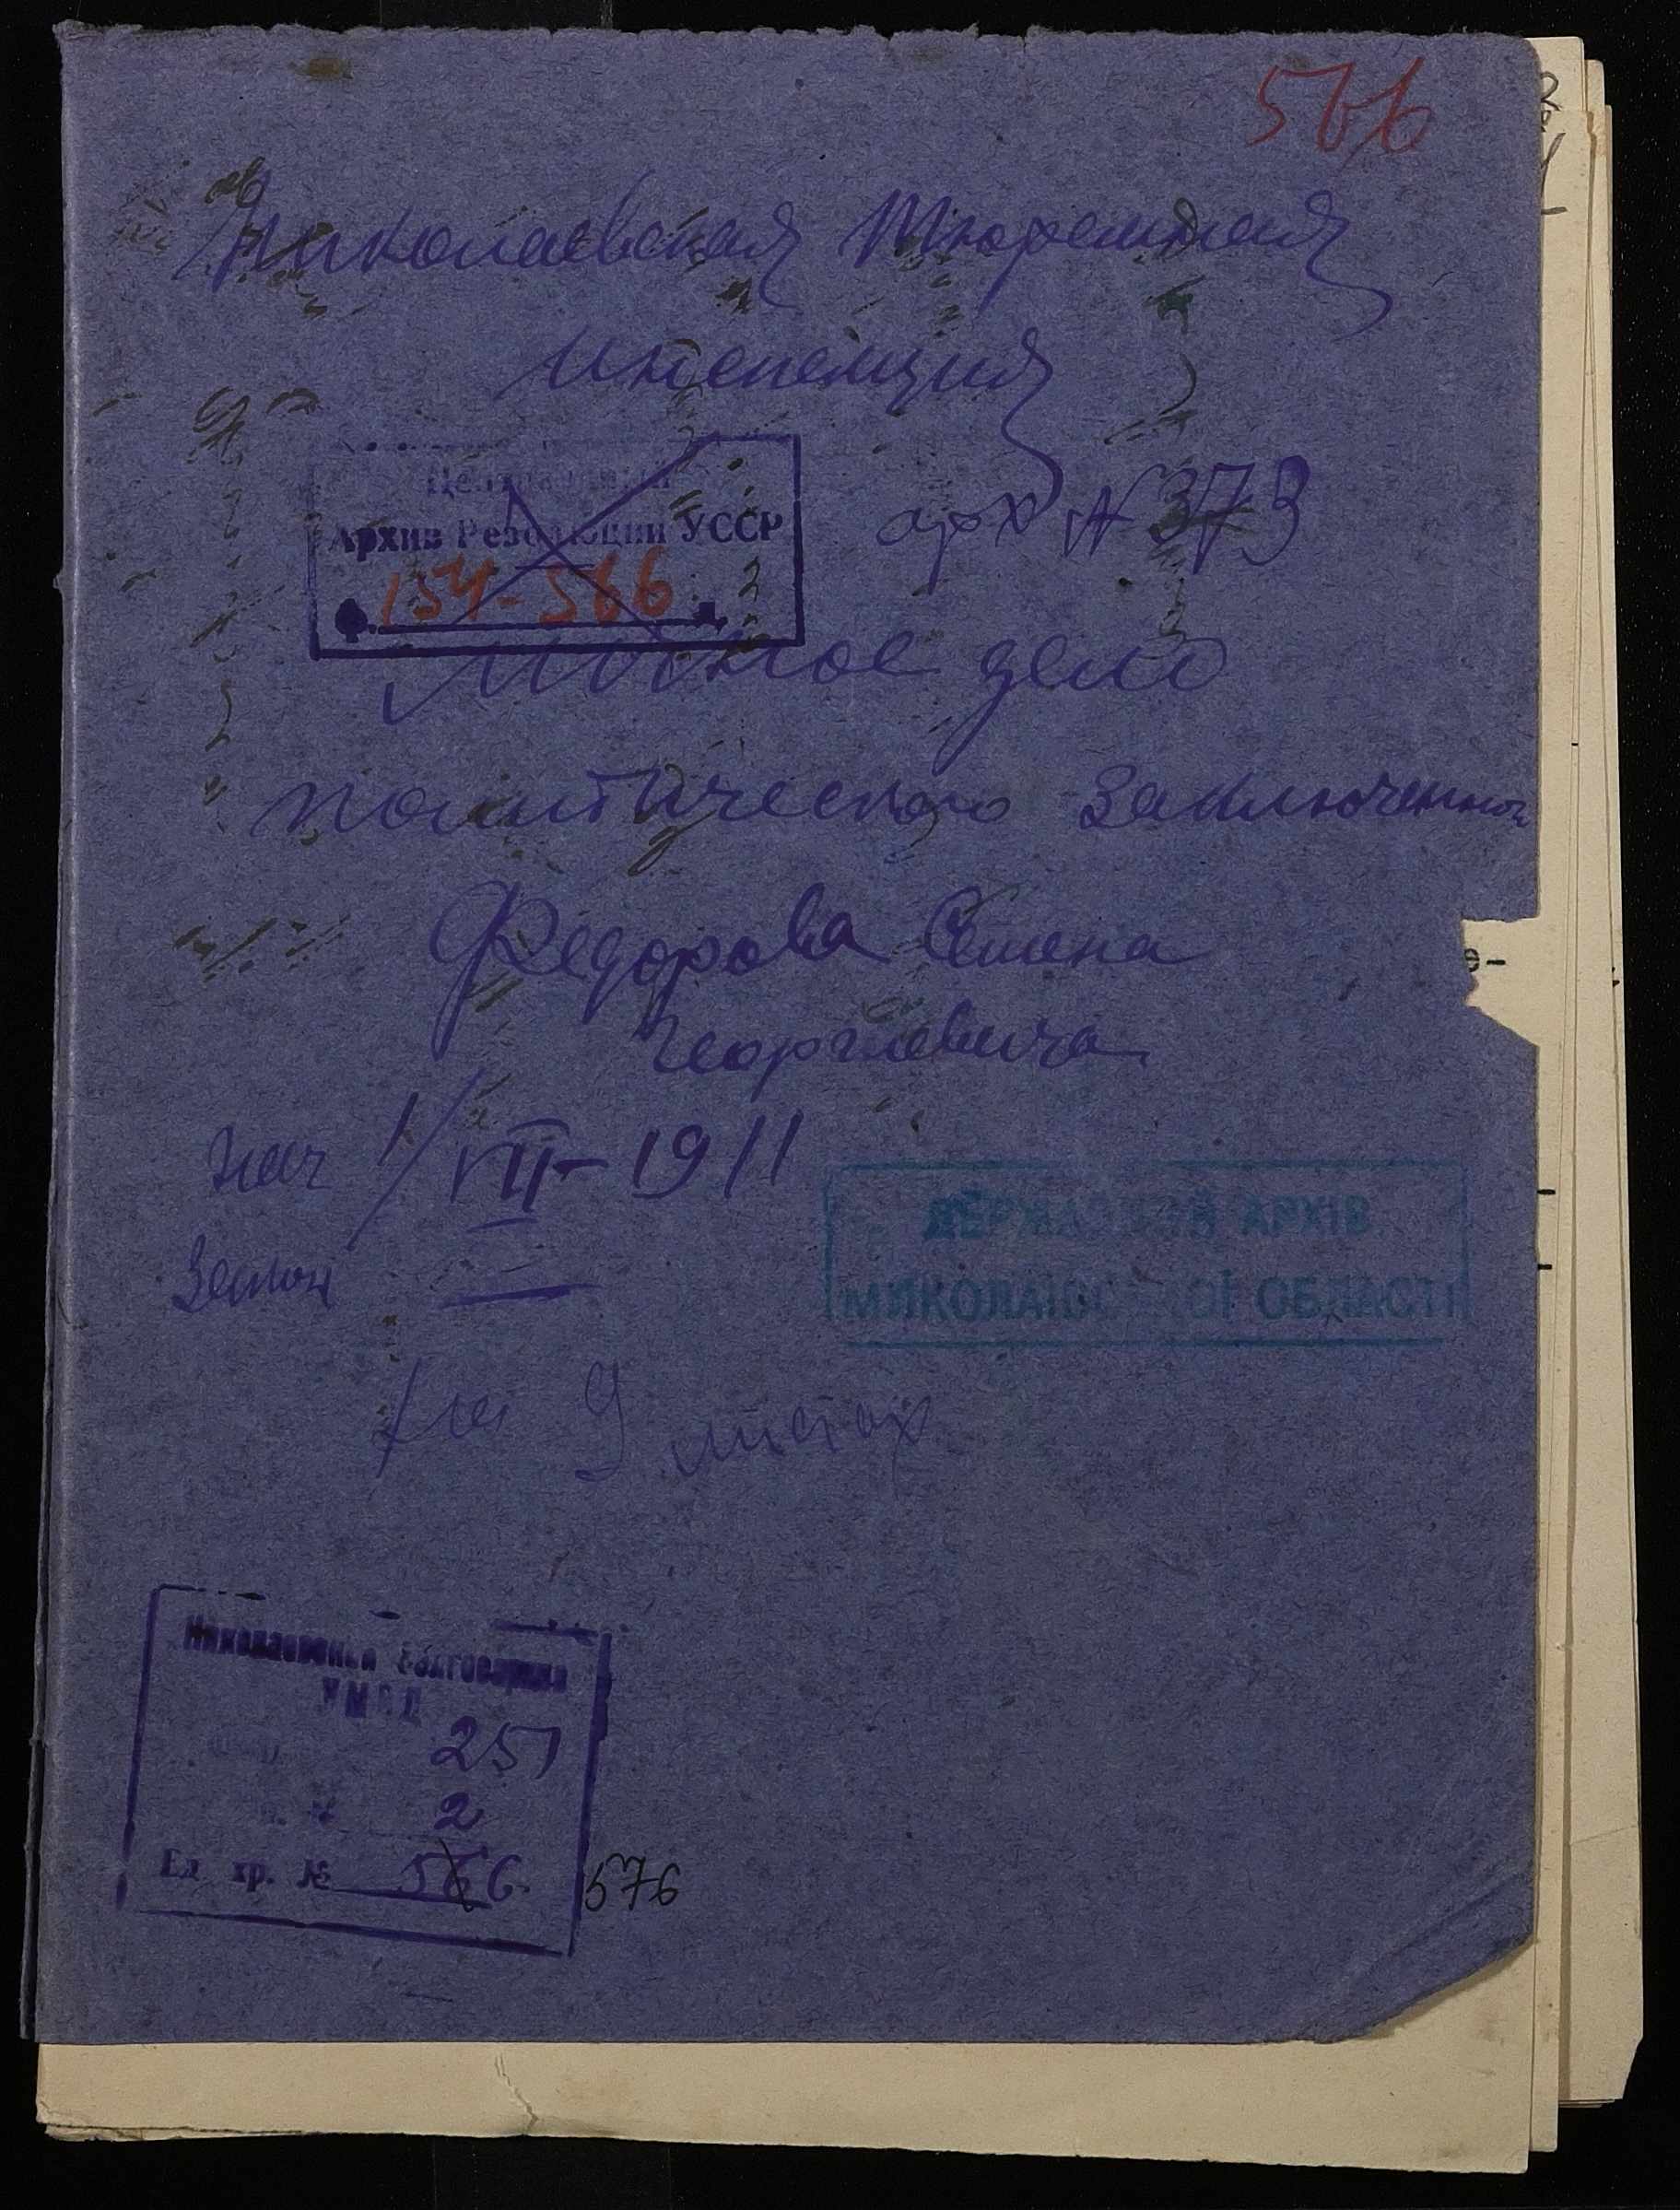 566
Николаевская Тюремная
инспекция
Архив Революции УССР
154-566
арх № 373
Личное дело
политического заключенного
Федорова Семена
Георгиевича
нач 1/VII-1911
Закон
на 9 листах
ДЕРЖАВНИЙ АРХІВ
МИКОЛАЇВСЬКОЇ ОБЛАСТІ
УМВД
251
№ 2
Ед. хр. № 566
576